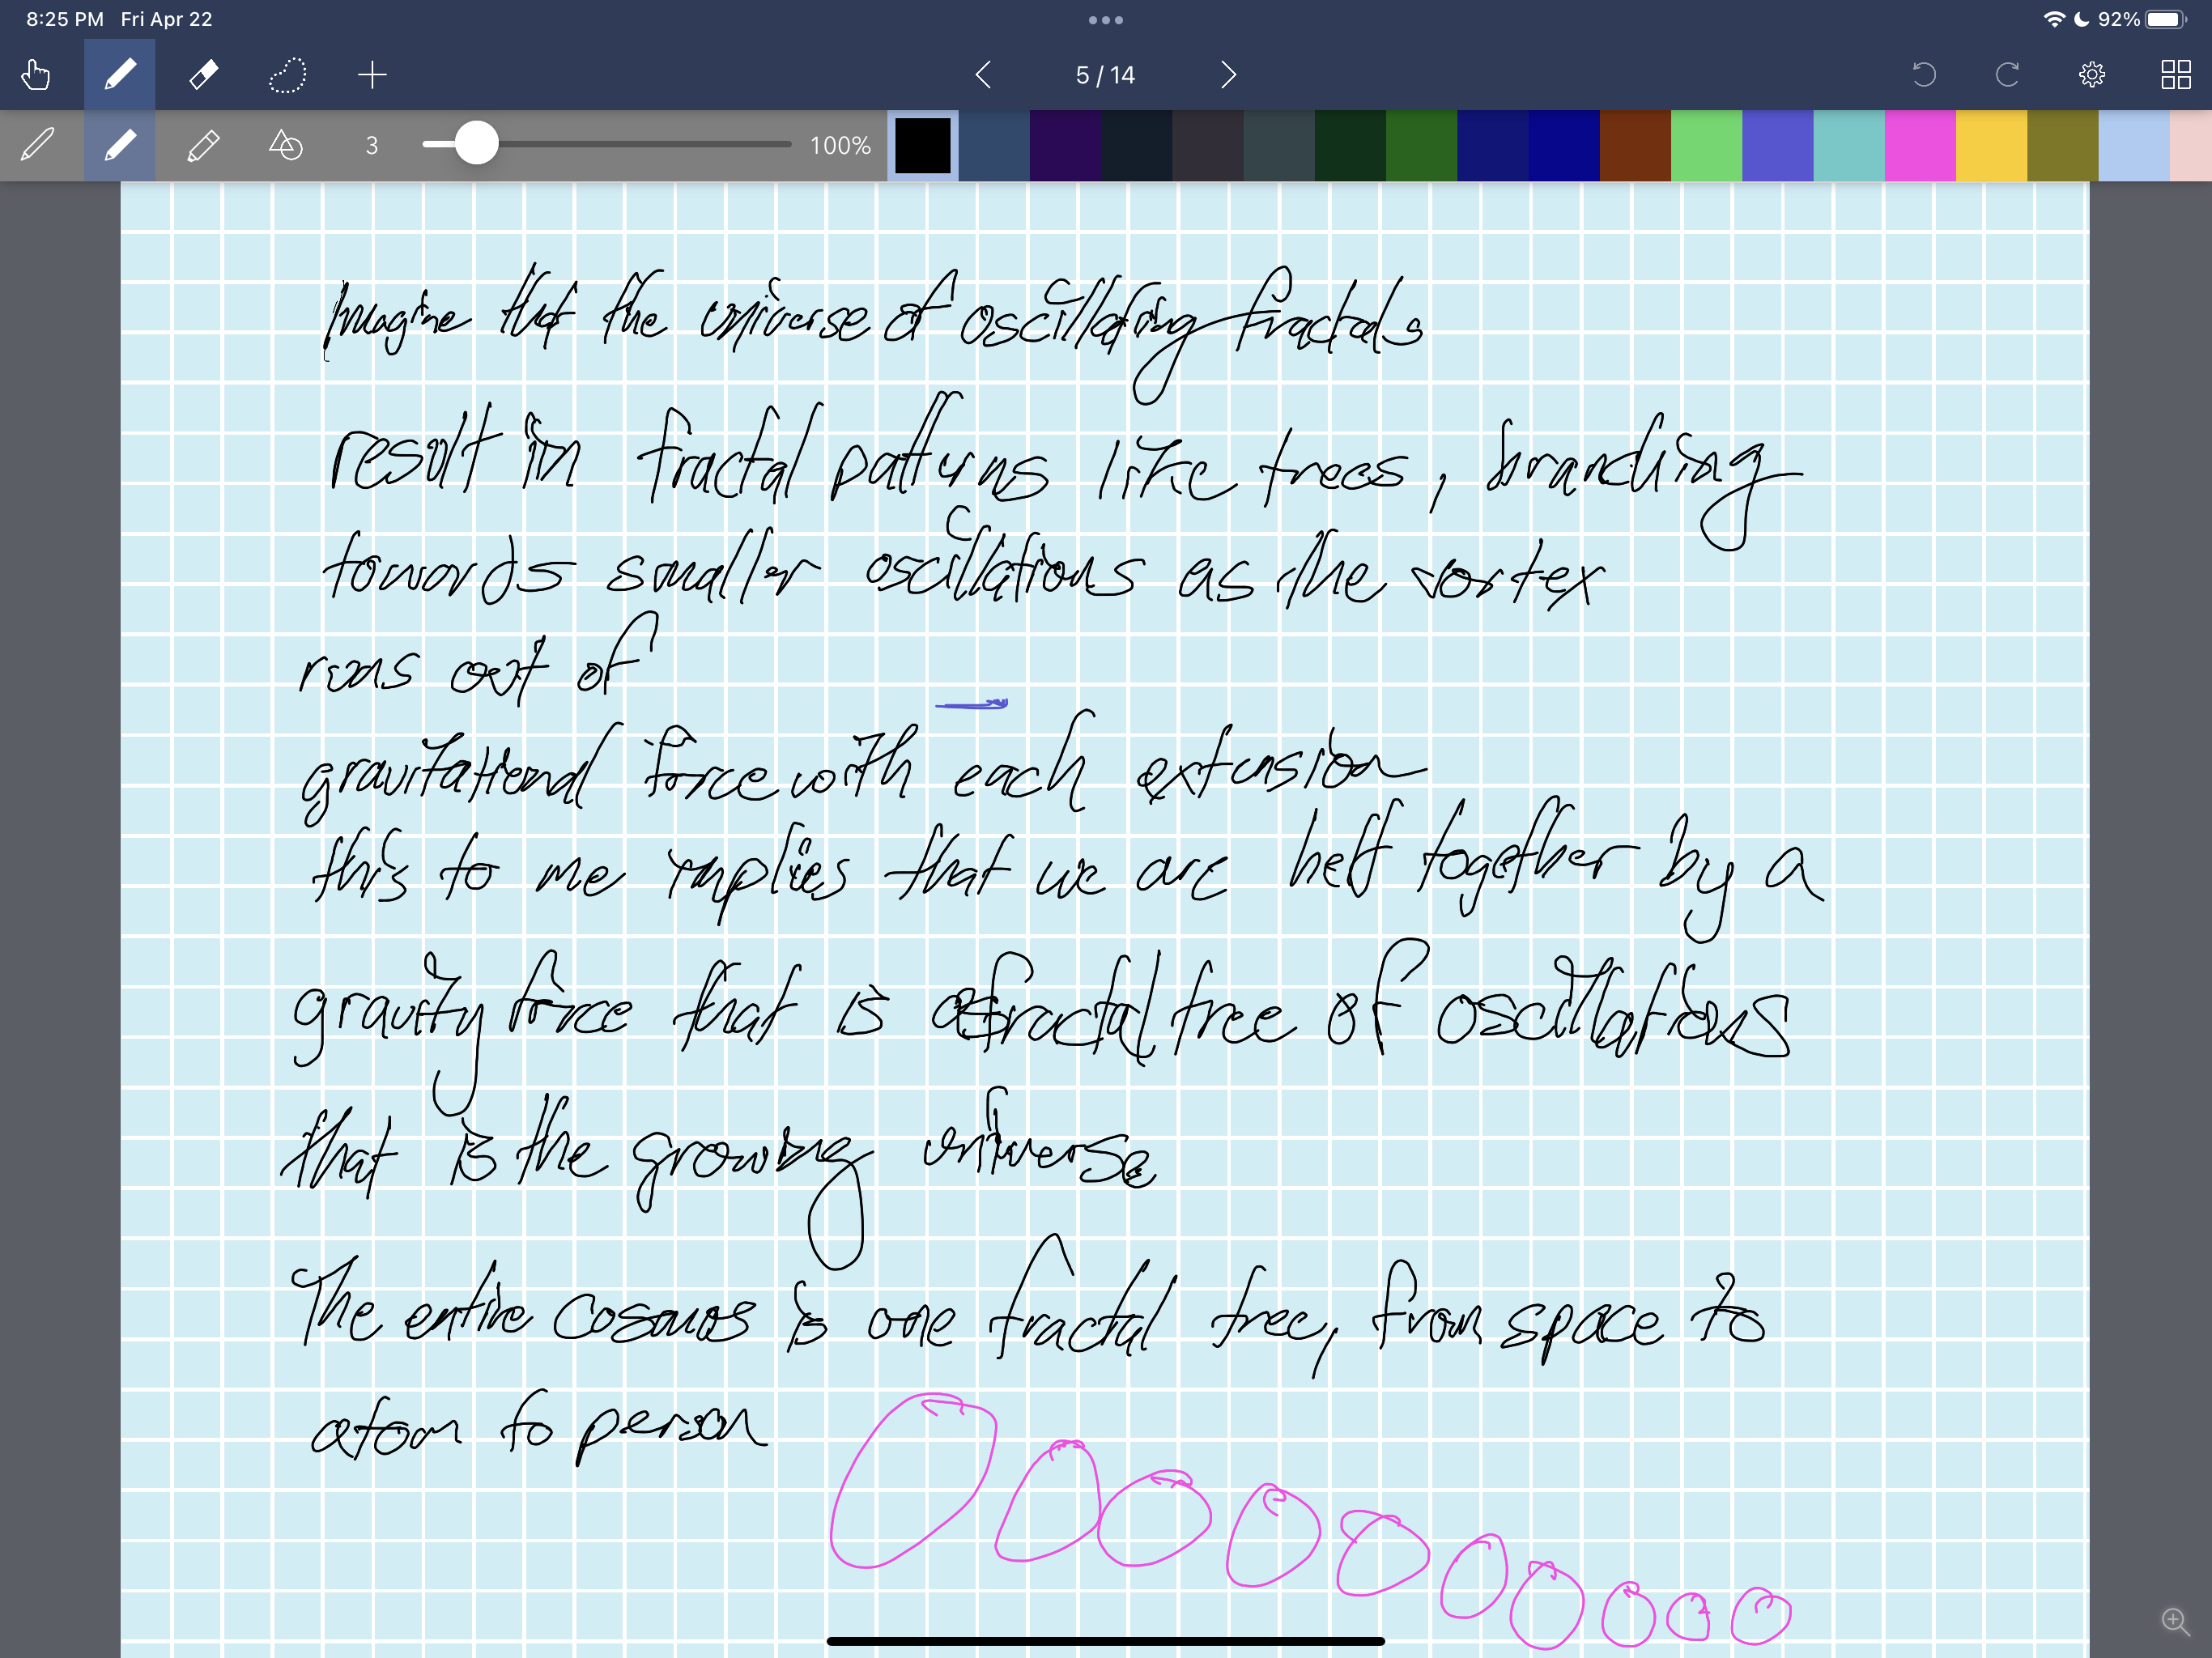 8:25 PM Fri Apr 22
92%
5 / 14
3
100%
Imagine that the universe of oscillating fractals
result in fractal patterns like trees, branching
towards smaller oscillations as the vortex
runs out of
gravitational force with each extension
this to me implies that we are held together by a
gravity force that is a fractal tree of oscillations
that is the growing universe
The entire cosmos is one fractal tree, from space to
atom to person